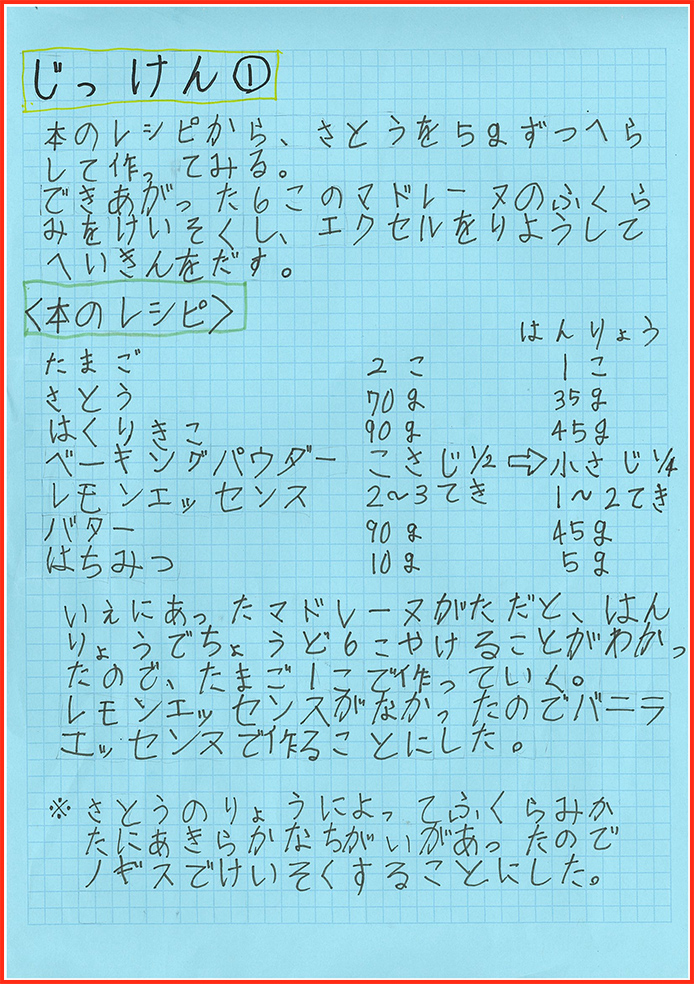 じっけん①
本のレシピから、さとうを5gずつへら
して作ってみる。
できあがった6このマドレーヌのふくら
みをけいそくし、エクセルをりようして
へいきんをだす。
〈本のレシピ〉
はんりょう
たまご 2こ 1こ
さとう 70g 35g
はくりきこ 90g 45g
ベーキングパウダー こさじ1/2 ⇨ 小さじ1/4
レモンエッセンス 2〜3てき 1〜2てき
バター 90g 45g
はちみつ 10g 5g
いえにあったマドレーヌがただと、はん
りょうでちょうど6こやけることがわかっ
たので、たまご1こで作っていく。
レモンエッセンスがなかったのでバニラ
エッセンスで作ることにした。
※さとうのりょうによってふくらみか
たにあきらかなちがいがあったので
ノギスでけいそくすることにした。